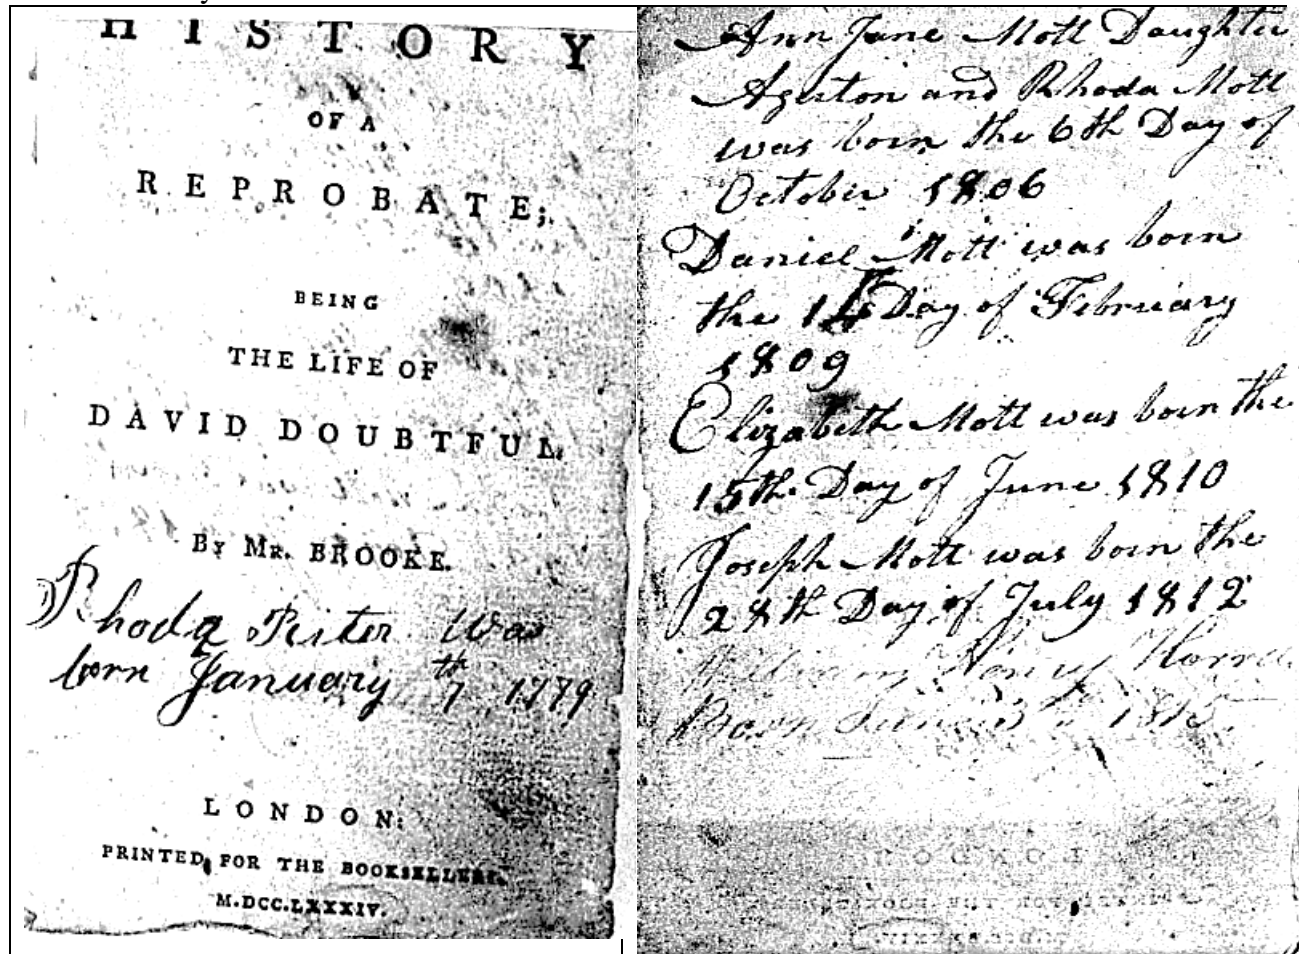 HISTORY
OF A
REPROBATE;
BEING
THE LIFE OF
DAVID DOUBTFUL.
By Mr. BROOKE.
Rhoda Pister Was
born January 7th 1779
LONDON:
PRINTED FOR THE BOOKSELLERS.
M.DCC.LXXXIV.
Ann Jane Mott Daughter
Aguston and Rhoda Mott
was born the 6th Day of
October 1806
Daniel Mott was born
the 14 Day of February
1809
Elizabeth Mott was born the
15th Day of June 1810
Joseph Mott was born the
28th Day of July 1812
Henry
Born